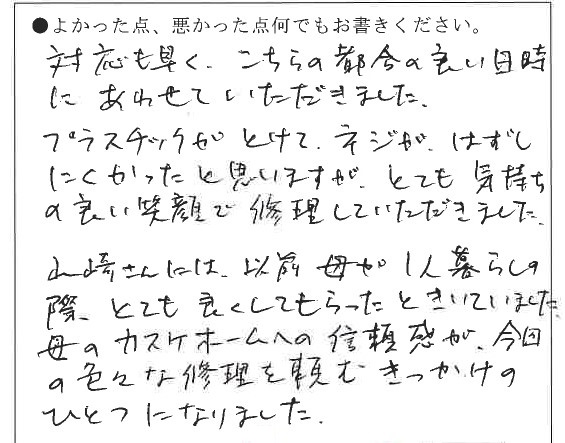 ●よかった点、悪かった点何でもお書きください。
対応も早く、こちらの都合の良い日時
にあわせていただきました。
プラスチックがとけて、ネジが、はずし
にくかったと思いますが、とても気持ち
の良い笑顔で修理していただきました。
山崎さんには、以前母が1人暮らしの
際、とても良くしてもらったときいていました。
母のカスケホームへの信頼感が、今回
の色々な修理を頼むきっかけの
ひとつになりました。